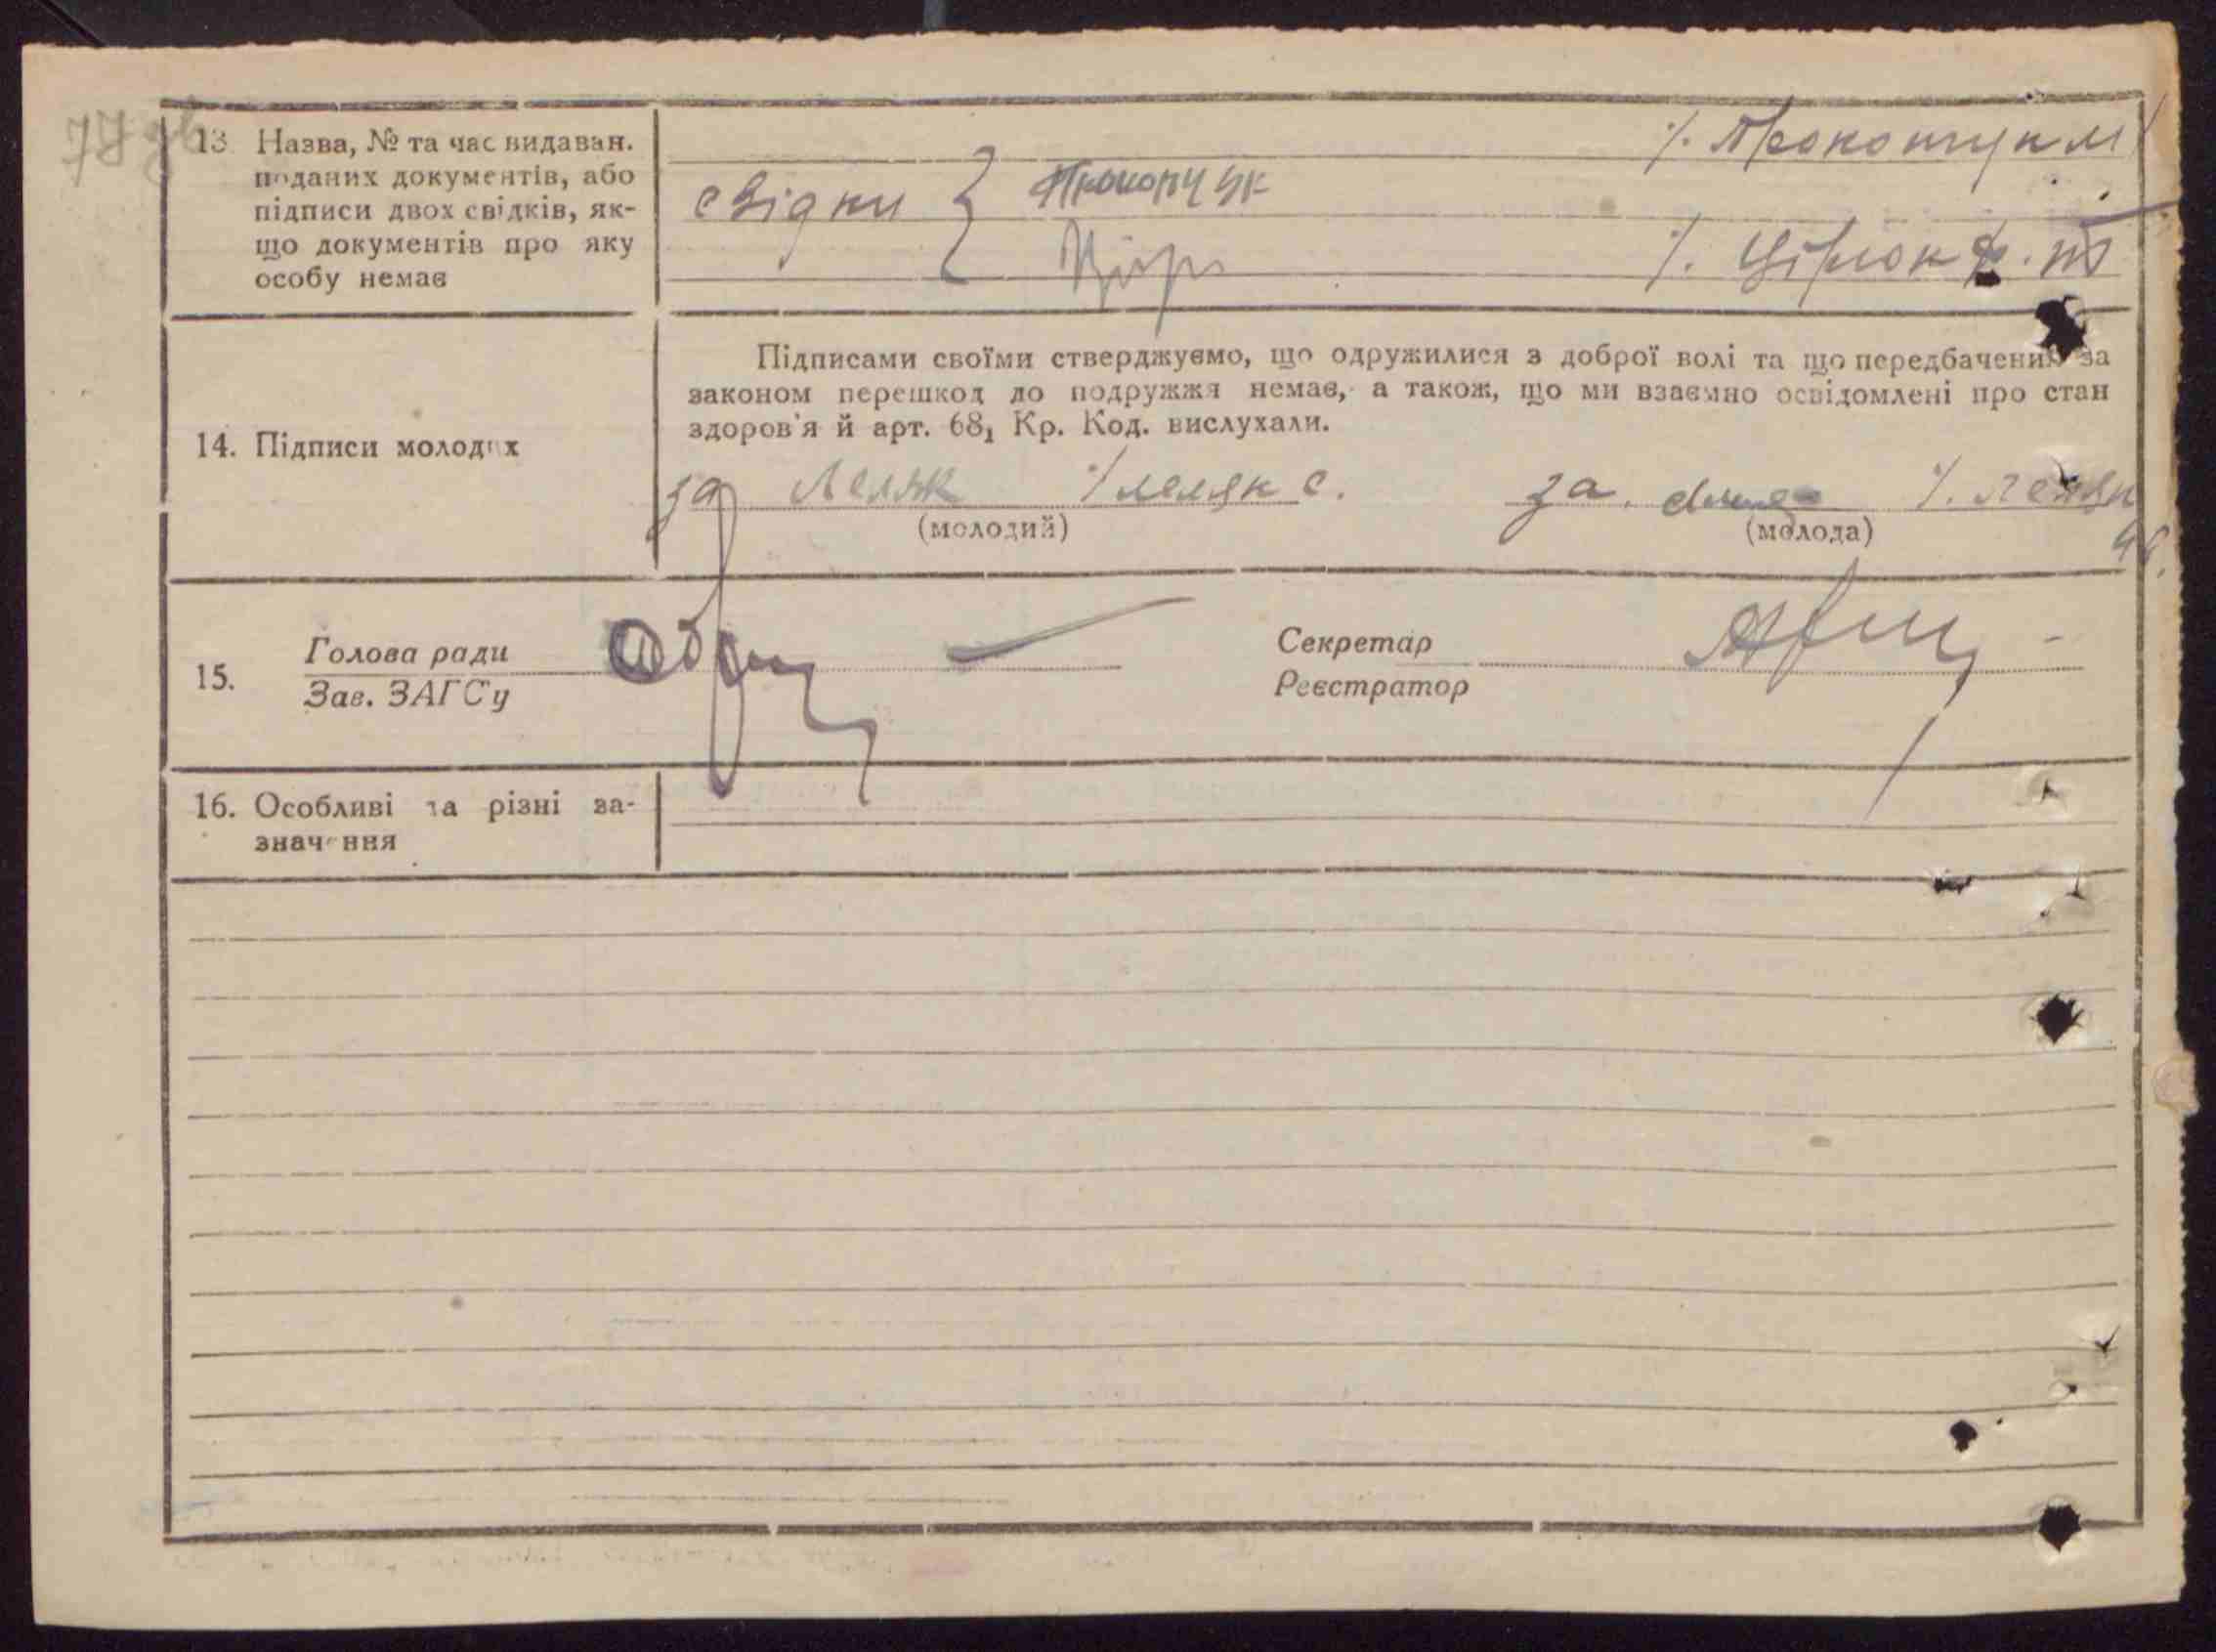 77 зв
13. Назва, № та час видаван.
поданих документів, або
підписи двох свідків, як-
що документів про яку
особу немає
/. Прокопчук М
свідки { Прокопчук
/. Цірюк Ф. Т
14. Підписи молодих
Підписами своїми стверджуємо, що одружилися з доброї волі та що передбачених за
законом перешкод до подружжя немає, а також, що ми взаємно освідомлені про стан
здоров'я й арт. 68₁ Кр. Код. вислухали.
за Леляк /Леляк С. за. /. Леляк
(молодий) (молода)
15. Голова ради
Зав. ЗАГСу
Секретар
Реєстратор
16. Особливі та різні за-
значення